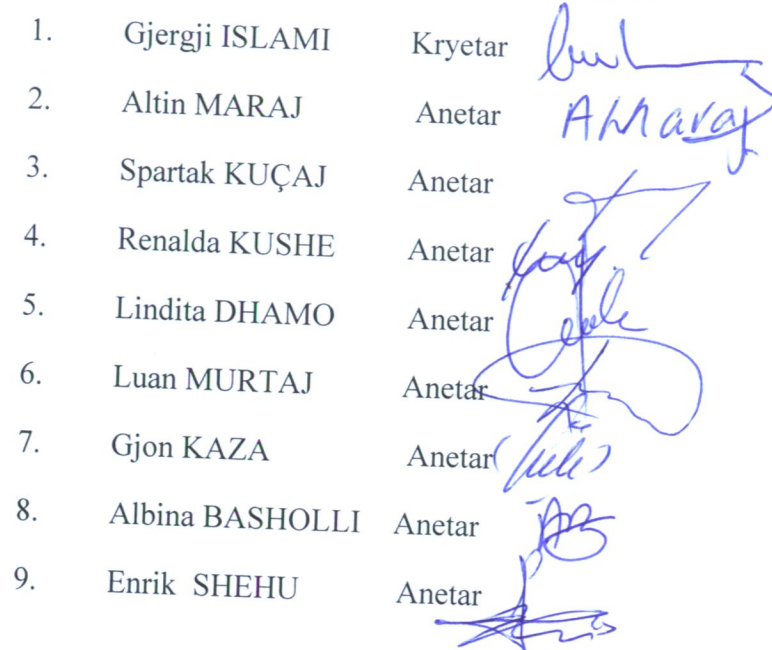 1. Gjergji ISLAMI Kryetar
2. Altin MARAJ Anetar AMaraj
3. Spartak KUÇAJ Anetar
4. Renalda KUSHE Anetar
5. Lindita DHAMO Anetar
6. Luan MURTAJ Anetar
7. Gjon KAZA Anetar
8. Albina BASHOLLI Anetar AB
9. Enrik SHEHU Anetar